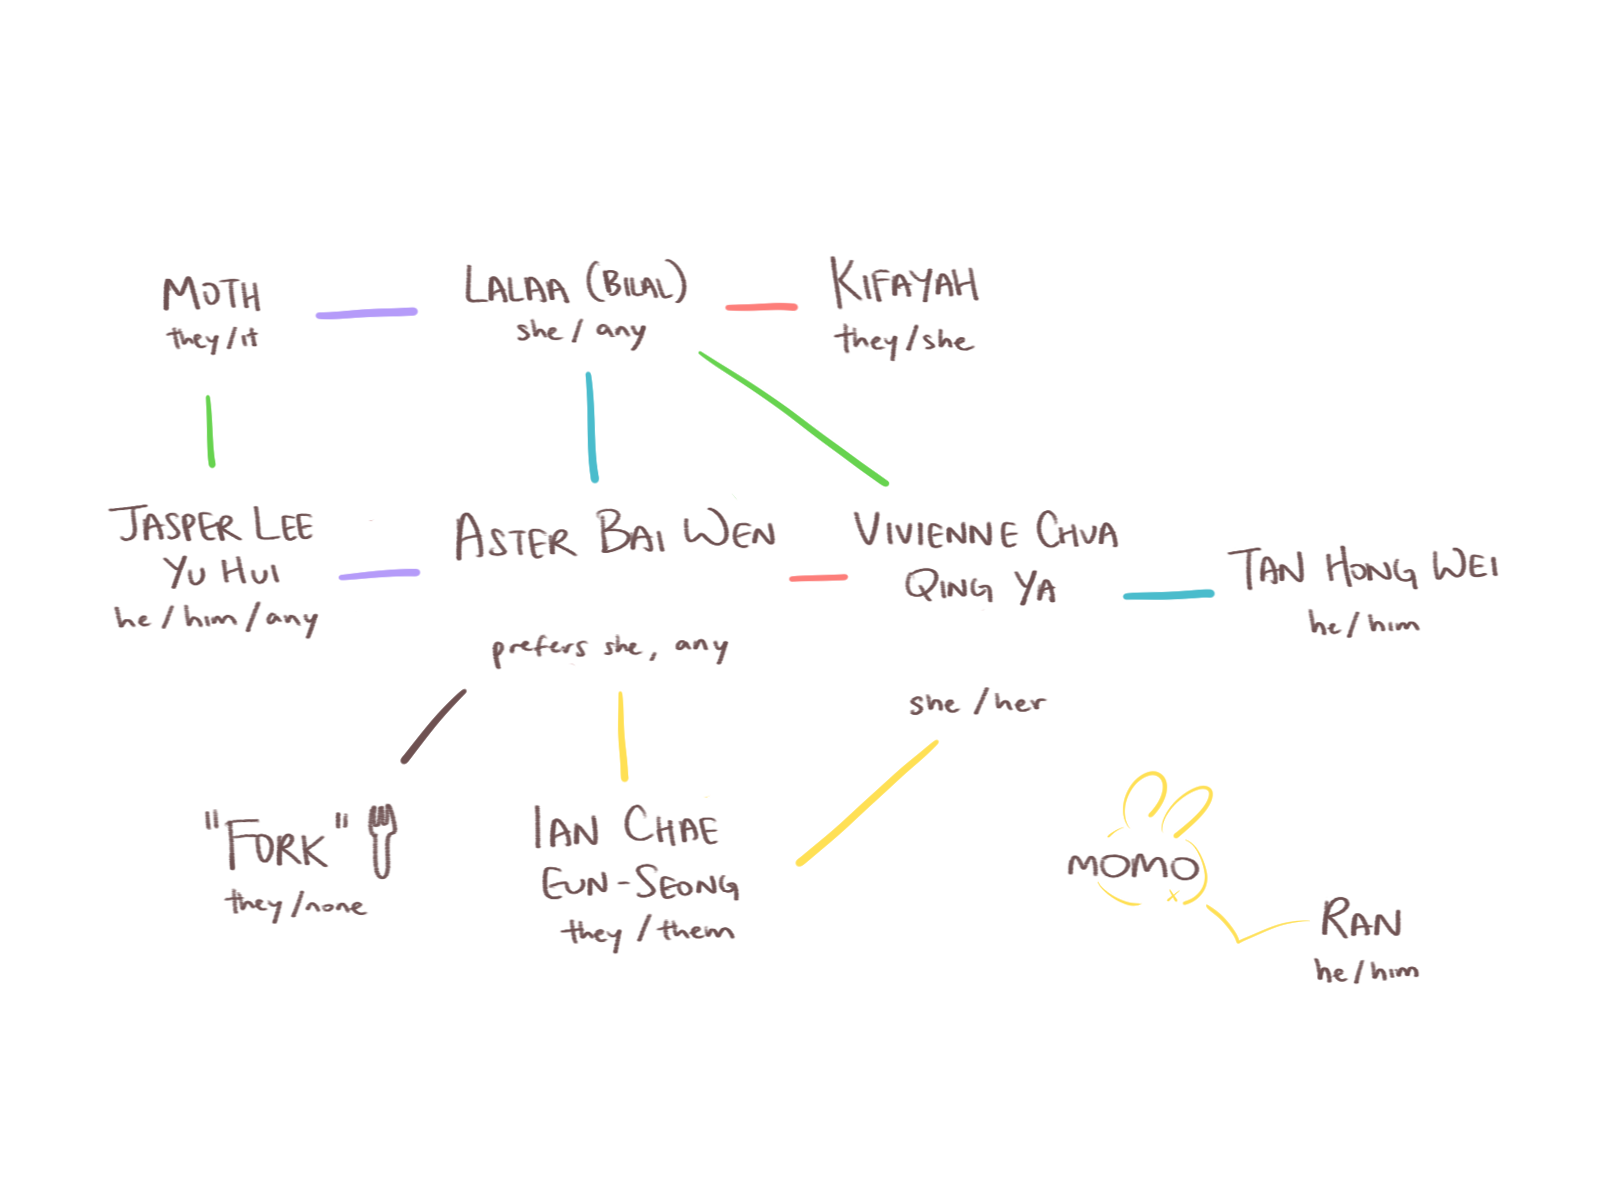 MOTH
they/it
LALAA (BILAL)
she / any
KIFAYAH
they/she
JASPER LEE
YU HUI
he / him / any
ASTER BAI WEN
prefers she, any
VIVIENNE CHUA
QING YA
she /her
TAN HONG WEI
he/him
"FORK"
they/none
IAN CHAE
EUN-SEONG
they / them
MOMO
RAN
he/him